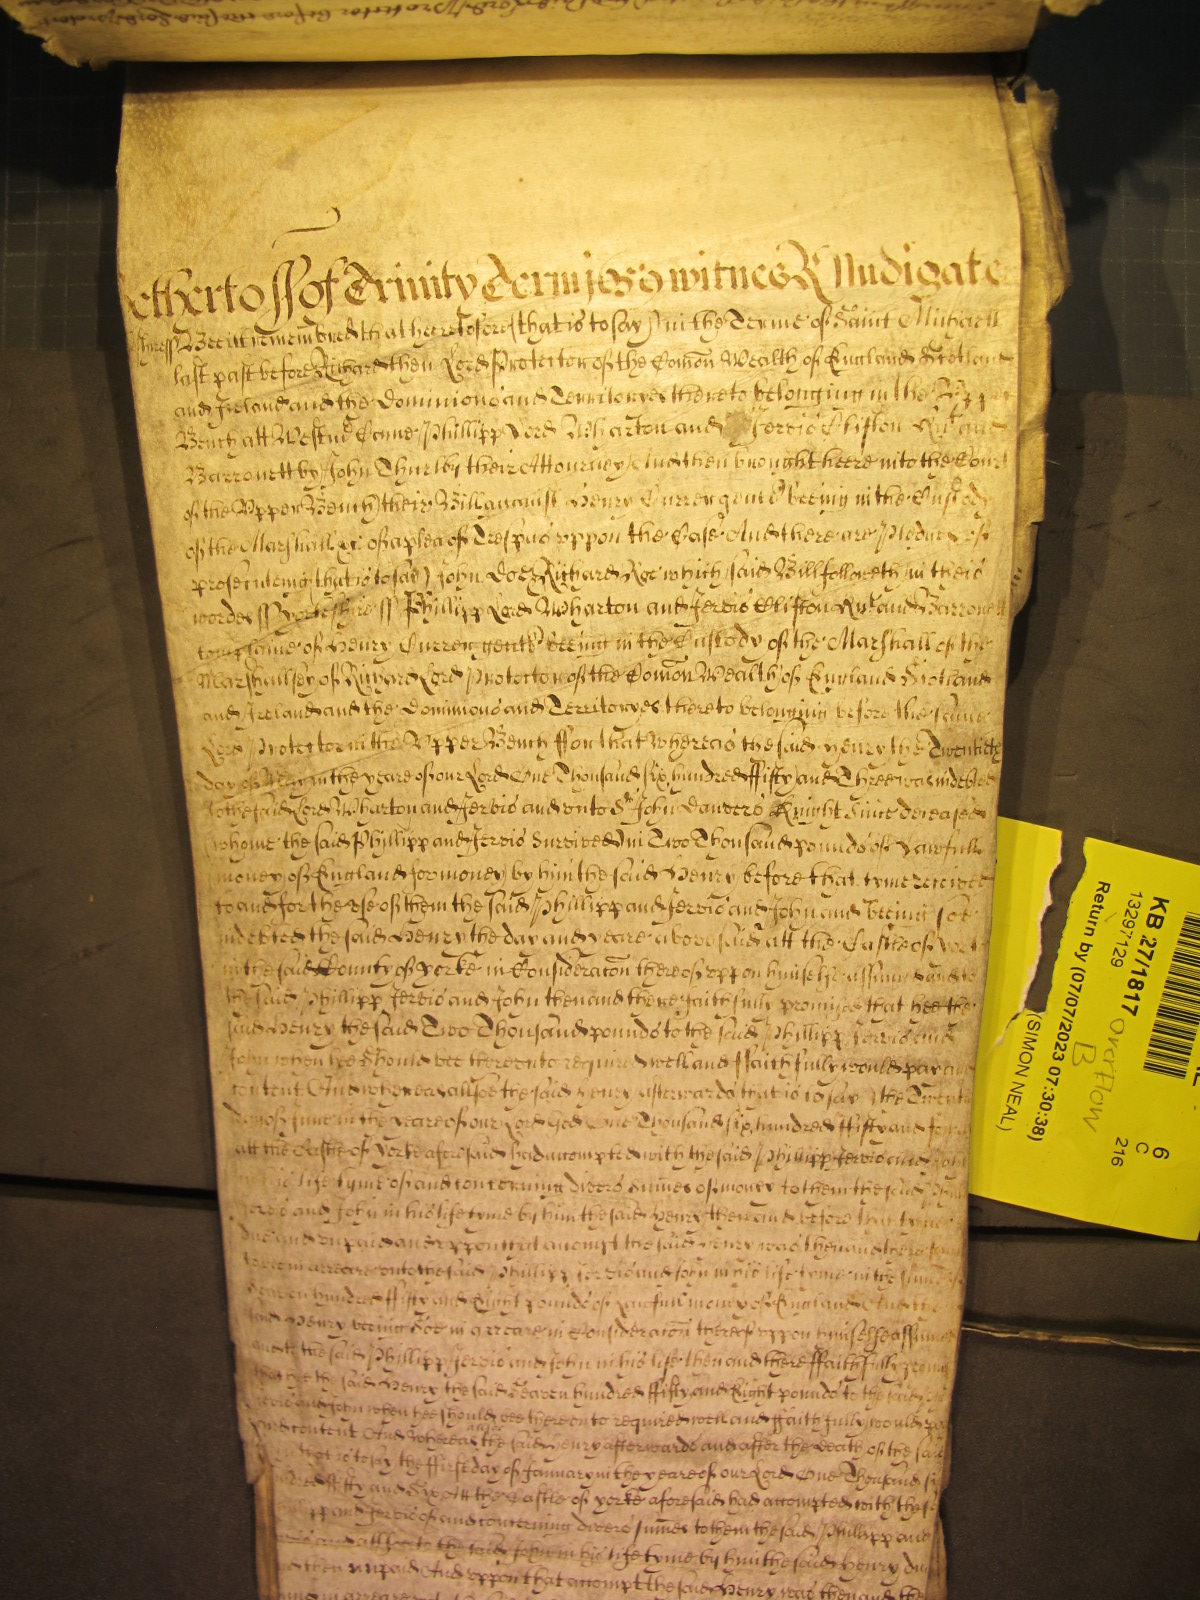 Hetherto ss of Trinity Terme 1659 witnes R Nudigate
Bee it remembred that heretofore (that is to say) in the Terme of Saint Michaell
last past before Richard then Lord Protector of the Comon Wealth of England Scotland
and Ireland and the Dominions and Territoryes thereto belonging in the Upper
Bench att Westmr Came Phillipp Lord Wharton and Jervis Clifton Knt and
Barronett by John Thurlby their Attourney And then brought heere into the Court
of the Upper Bench their Bill against Henry Currer gent beeing in the Custody
of the Marshall &c of a plea of Trespas uppon the Case And there are Pledges of
prosecuteing (that is to say) John Doe & Richard Roe which said Bill followeth in theis
wordes ss Yorkeshire ss Phillipp Lord Wharton and Jervis Clifton Knt and Barronett
complaine of Henry Currer gent beeing in the Custody of the Marshall of the
Marshallsey of Richard Lord Protector of the Comon Wealth of England Scotland
and Ireland and the Dominions and Territoryes thereto belonging before the same
Lord Protector in the Upper Bench ffor that whereas the said Henry the Twentieth
day of in the yeare of our Lord One Thousand six hundred ffifty and Three was indebted
to the said Lord Wharton and Jervis and unto Sr John Danvers Knight since deceased
whome the said Phillipp and Jervis survived in Two Thousand pounds of lawfull
money of England for money by him the said Henry before that tyme received
to and for the use of them the said Phillipp and Jervis and John and beeing soe
indebted the said Henry the day and yeare abovesaid att the Castle of Yorke
in the said County of Yorke in Consideracon thereof uppon himselfe assumed and to
the said Phillipp Jervis and John then and there faithfully promised that hee the
said Henry the said Two Thousand pounds to the said Phillipp Jervis and
John when hee should bee thereunto required well and ffaithfully would pay and
content And whereas allsoe the said Henry afterwards that is to say the Twentieth
day of June in the yeare of our Lord God One Thousand six hundred ffifty and
att the Castle of Yorke aforesaid had accompted with the said Phillipp Jervis and John
in his life tyme of and concerning divers summes of money to them the said Phillipp
Jervis and John in his life tyme by him the said Henry then and before that tyme
due and unpaid and uppon that accompt the said Henry was then and there
in arreare unto the said Phillipp Jervis and John in his life tyme in the summe of
Seaven hundred ffifty and Eight pounds of lawfull money of England And the
said Henry beeing soe in arreare in Consideracon thereof uppon himselfe assumed
and to the said Phillipp Jervis and John in his life then and there ffaithfully promised
that hee the said Henry the said Seaven hundred ffifty and Eight pounds to the said
Jervis and John when hee should bee thereunto required well and ffaithfully would pay
and content And Whereas the said Henry afterwards and after the death of the said
John that is to say the ffirst day of January in the yeare of our Lord One Thousand six
hundred ffifty and Six Att the Castle of Yorke aforesaid had accompted with the said
Phillipp and Jervis of and concerning divers summes to them the said Phillipp and
Jervis and allsoe to the said John in his life tyme by him the said Henry due
and then unpaid And uppon that accompt the said Henry was then and there
KB 27/1817
13297129
Return by (07/07/2023 07:30:38)
(SIMON NEAL)
Overflow
B
6
C
216